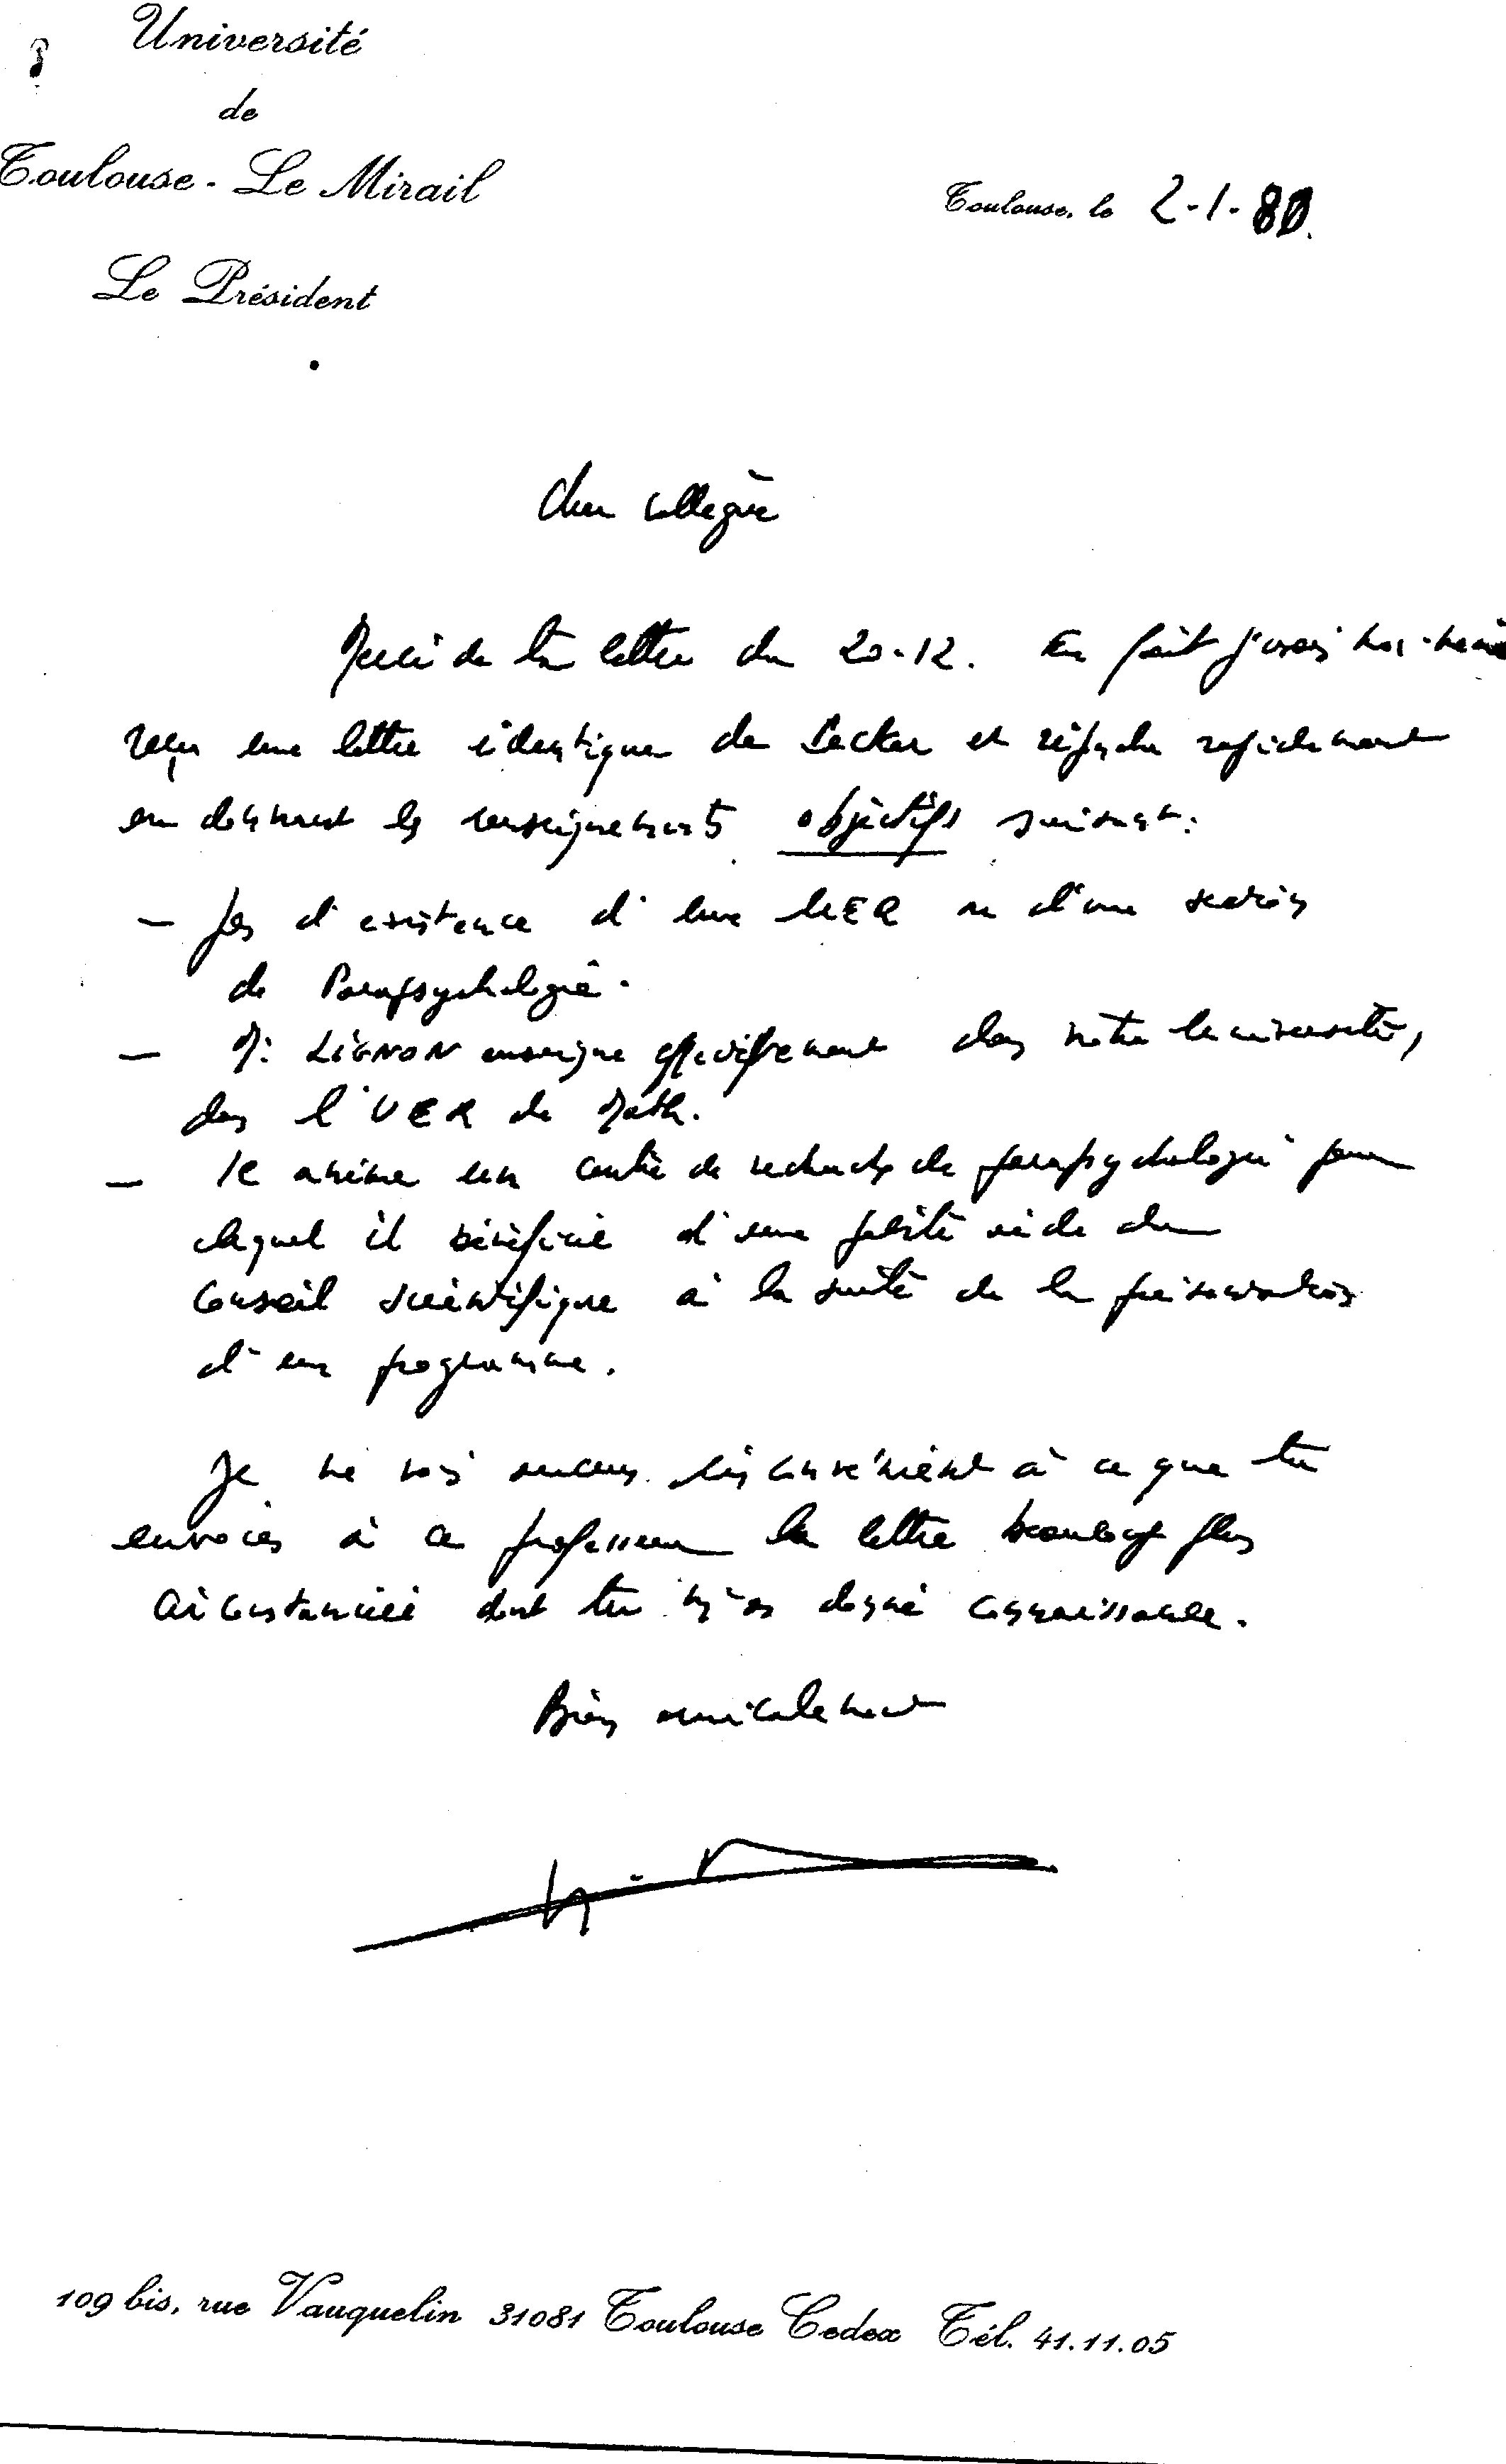 Université
de
Toulouse - Le Mirail
Le Président
Toulouse, le 2-1-80.
Cher collègue
Merci de ta lettre du 20-12. En fait j'avais moi-même
reçu une lettre identique de et répondu rapidement
en donnant les renseignements objectifs suivants :
— pas d'existence d'une UER ou d'une section
de Parapsychologie.
— M. LIGNON enseigne effectivement dans notre Université,
dans l'UER de Math.
— Il anime un centre de recherche de parapsychologie pour
lequel il bénéficie d'une petite aide du
Conseil Scientifique à la suite de la présentation
d'un programme.
Je ne vois aucun inconvénient à ce que tu
envoies à ce professeur la lettre beaucoup plus
circonstanciée dont tu m'as donné connaissance.
Bien amicalement
109 bis, rue Vauquelin 31081 Toulouse Cedex Tél. 41.11.05